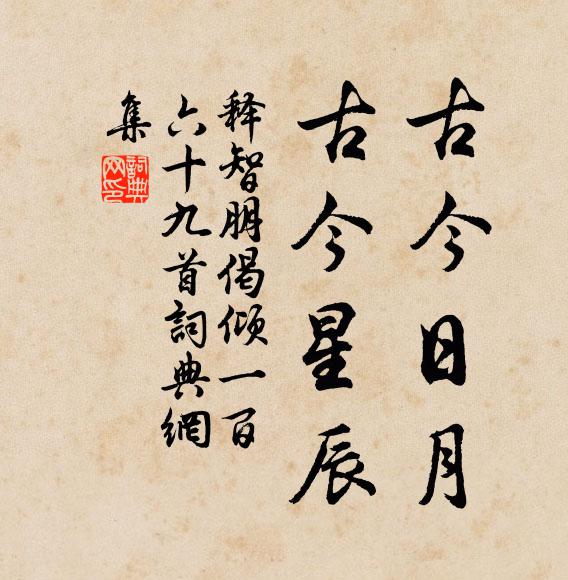 古今日月
古今星辰
释智朋偈倾一百
六十九首詞典網
集
詞典網印